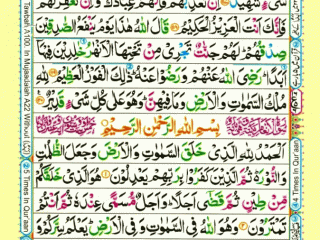 شَهِيدٌ اِنْ تُعَذِّبْهُمْ فَاِنَّهُمْ عِبَادُكَ وَاِنْ تَغْفِرْ لَهُمْ
فَاِنَّكَ اَنْتَ الْعَزِيْزُ الْحَكِيْمُ قَالَ اللّٰهُ هٰذَا يَوْمُ يَنْفَعُ الصّٰدِقِيْنَ
صِدْقُهُمْ لَهُمْ جَنّٰتٌ تَجْرِيْ مِنْ تَحْتِهَا الْاَنْهٰرُ خٰلِدِيْنَ فِيْهَا
اَبَدًا رَضِيَ اللّٰهُ عَنْهُمْ وَرَضُوْا عَنْهُ ذٰلِكَ الْفَوْزُ الْعَظِيْمُ لِلّٰهِ
مُلْكُ السَّمٰوٰتِ وَالْاَرْضِ وَمَا فِيْهِنَّ وَهُوَ عَلٰى كُلِّ شَيْءٍ قَدِيْرٌ
بِسْمِ اللّٰهِ الرَّحْمٰنِ الرَّحِيْمِ
اَلْحَمْدُ لِلّٰهِ الَّذِيْ خَلَقَ السَّمٰوٰتِ وَالْاَرْضَ وَجَعَلَ الظُّلُمٰتِ
وَالنُّوْرَ ثُمَّ الَّذِيْنَ كَفَرُوْا بِرَبِّهِمْ يَعْدِلُوْنَ هُوَ الَّذِيْ خَلَقَكُمْ
مِنْ طِيْنٍ ثُمَّ قَضٰى اَجَلًا وَاَجَلٌ مُسَمًّى عِنْدَهٗ ثُمَّ اَنْتُمْ
تَمْتَرُوْنَ وَهُوَ اللّٰهُ فِي السَّمٰوٰتِ وَفِي الْاَرْضِ يَعْلَمُ سِرَّكُمْ وَ
5 Times In Qur'aan
4 Times In Qur'aan